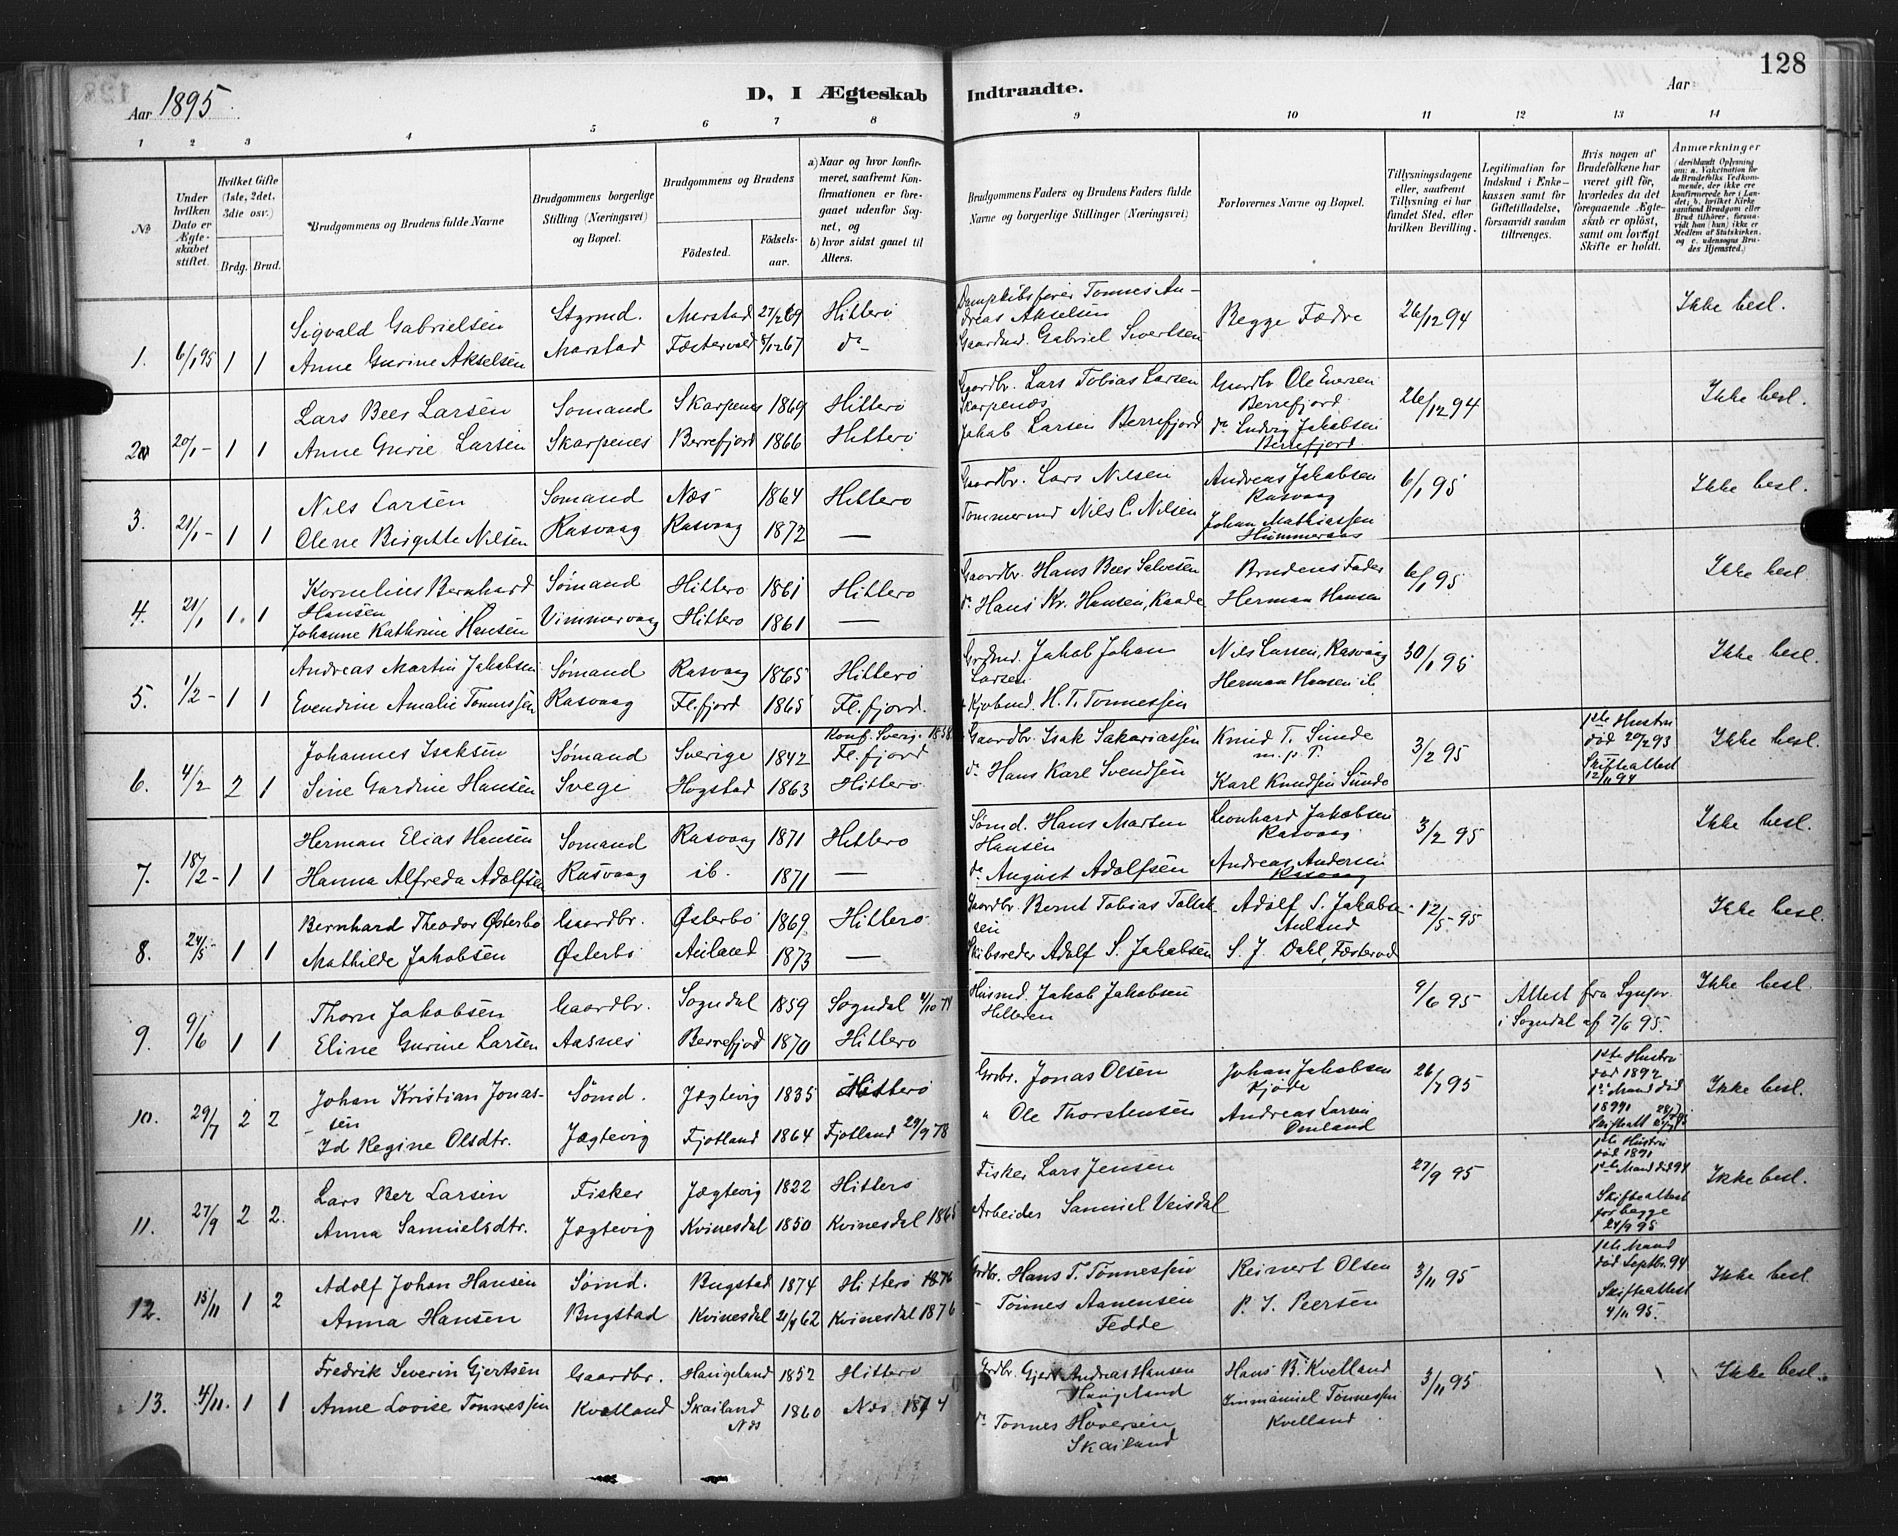 128
Aar 1895.
D, I Ægteskab Indtraadte.
Aar
1 2 3 4 5 6 7 8 9 10 11 12 13 14
No
Under hvilken Dato er Ægteskabet stiftet.
Hvilket Gifte (1ste, 2det, 3die osv.)
Brdg. Brud.
Brudgommens og Brudens fulde Navne
Brudgommens borgerlige Stilling (Næringsvei) og Bopæl.
Brudgommens og Brudens
Fødested. Fødselsaar.
a) Naar og hvor konfirmeret, saafremt Konfirmationen er foregaaet udenfor Sognet, og
b) hvor sidst gaaet til Alters.
Brudgommens Faders og Brudens Faders fulde Navne og borgerlige Stillinger (Næringsvei)
Forlovernes Navne og Bopæl.
Tillysningsdagene eller, saafremt Tillysning ei har fundet Sted, efter hvilken Bevilling.
Legitimation for Indskud i Enkekassen samt for Giftetilladelse, forsaavidt saadan tiltrænges.
Hvis nogen af Brudefolkene har været gift før, hvorledes da det foregaaende Ægteskab er opløst, samt om lovligt Skifte er holdt.
Anmærkninger
(deriblandt Oplysning om: a. Vakcination for de Brudefolks Vedkommende, der ikke ere konfirmerede her i Landet; b. hvilket Kirkesamfund Brudgom eller Brud tilhører, forsaavidt han (hun) ikke er Medlem af Statskirken, og c. udensogns Brudes Hjemsted.)
1. 6/1 95 1 1 Sigvald Gabrielsen Styrmd. Marstad 27/2 69 Hitterø Dampskibsfører Tønnes Andreas Akselsen Begge Fædre 26/12 94 Ikke besl.
Anne Gurine Akselsen Marstad Fæstervold 5/12 67 do Gaardmd. Gabriel Sivertsen
2. 20/1 - 1 1 Lars Beer Larsen Sømand Skarpenes 1869 Hitterø Gaardbr. Lars Tobias Larsen Skarpenæs Gaardbr Ole Enersen Berrefjord 26/12 94 Ikke besl.
Anne Gurie Larsen Skarpenes Berrefjord 1866 Hitterø Jakob Larsen Berrefjord do Ludvig Jakobsen Berrefjord
3. 21/1 - 1 1 Nils Larsen Sømand Næs 1864 Hitterø Gaardbr. Lars Nilsen Andreas Jakobsen Rasvaag 6/1 95 Ikke besl.
Olene Birgitte Nilsen Rasvaag Rasvaag 1872 — Tømmermd Nils C. Nilsen Johan Mathiassen Hummeraas
4. 21/1 1. 1 Kornelius Bernhard Hansen Sømand Hitterø 1861 Hitterø Gaardbr. Hans Beer Salvesen Brudens Fader 6/1 95 Ikke besl.
Johanne Kathrine Hansen Vimmervaag Hitterø 1861 — do Hans Kr. Hansen, Kaade Herman Hansen
5. 1/2 - 1 1 Andreas Martin Jakobsen Sømand Rasvaag 1865 Hitterø Grdmd. Jakob Johan Larsen Nils Larsen, Rasvaag 30/1 95 Ikke besl.
Evendine Amalie Tønnessen Rasvaag Fl.fjord 1865 Fl.fjord. Kjøbmd. H. T. Tønnessen Herman Hansen ib.
6. 4/2 2 1 Johannes Isaksen Sømand Sverige 1842 Konf. Sverig. 1858 Fl.fjord Gaardbr. Isak Sakariassen Knud T. Sunde m.p.P. 3/2 95 1ste Hustru død 20/2 93 Skifteattest 12/11 94 Ikke besl.
Sine Gardine Hansen Svege Hogstad 1863 Hitterø do Hans Karl Svendsen Karl Knudsen Sunde
7. 18/2 - 1 1 Herman Elias Hansen Sømand Rasvaag 1871 Hitterø Sømd. Hans Marten Hansen Leonhard Jakobsen Rasvaag 3/2 95 Ikke besl.
Hanna Alfreda Adolfsen Rasvaag ib. 1871 — do August Adolfsen Andreas Andersen Rasvaag
8. 24/5 - 1 1 Bernhard Theodor Østerbø Gaardbr. Østerbø 1869 Hitterø Gaardbr. Bernt Tobias Tollaksen Adolf S. Jakobsen Anland 12/5 95 Ikke besl.
Mathilde Jakobsen Østerbø Anland 1873 — Skibsreder Adolf S. Jakobsen S. J. Dahl, Fæstervold
9. 9/6 1 1 Thorn Jakobsen Gaardbr. Sogndal 1859 Sogndal 4/10 74 Husmd. Jakob Jakobsen Helleren 9/6 95 Attest fra Sgnpr. i Sogndal af 7/6 95. Ikke besl.
Eline Gurine Larsen Aasnes Berrefjord 1870 Hitterø
10. 29/7 2 2 Johan Kristian Jonassen Sømd. Jægtevig 1835 Hitterø Grdbr. Jonas Olsen Johan Jakobsen Kjøde 26/7 95 1ste Hustru død 1892 1ste Mand død 1890 Ikke besl.
Id Regine Olsdtr. Jægtevig Fjotland 1864 Fjotland 29/9 78 " Ole Thorstensen Andreas Larsen Omland
11. 27/9 2 2. Lars Ber Larsen Fisker Jægtevig 1822 Hitterø Fisker Lars Jensen 27/9 95 1ste Hustru død 1891 1ste Mand død 94 Skifteattest for begge 24/9 95 Ikke besl.
Anna Samuelsdtr. Jægtevig Kvinesdal 1850 Kvinesdal 1865 Arbeider Samuel Veisdal
12. 15/11 1 2 Adolf Johan Hansen Sømd. Bugstad 1874 Hitterø Grdbr. Hans T. Tønnessen Reinert Olsen 3/11 95 1ste Mand død Septbr. 94 Skifteattest 4/11 95. Ikke besl.
Anna Hansen Bugstad Kvinesdal 21/4 62 Kvinesdal 1876 - Tønnes Aanensen Fedde P. S. Peersen
13. 4/11. 1 1 Fredrik Severin Gjertsen Gaardbr. Haugeland 1852 Hitterø Grdbr. Gjert Andreas Hansen Haugeland Hans B. Kvelland 3/11 95 Ikke besl.
Anne Lovise Tønnessen Kvelland Skailand Næs 1860 Næs 1874 do Tønnes Haaversen Skailand Immanuel Tønnessen Kvelland